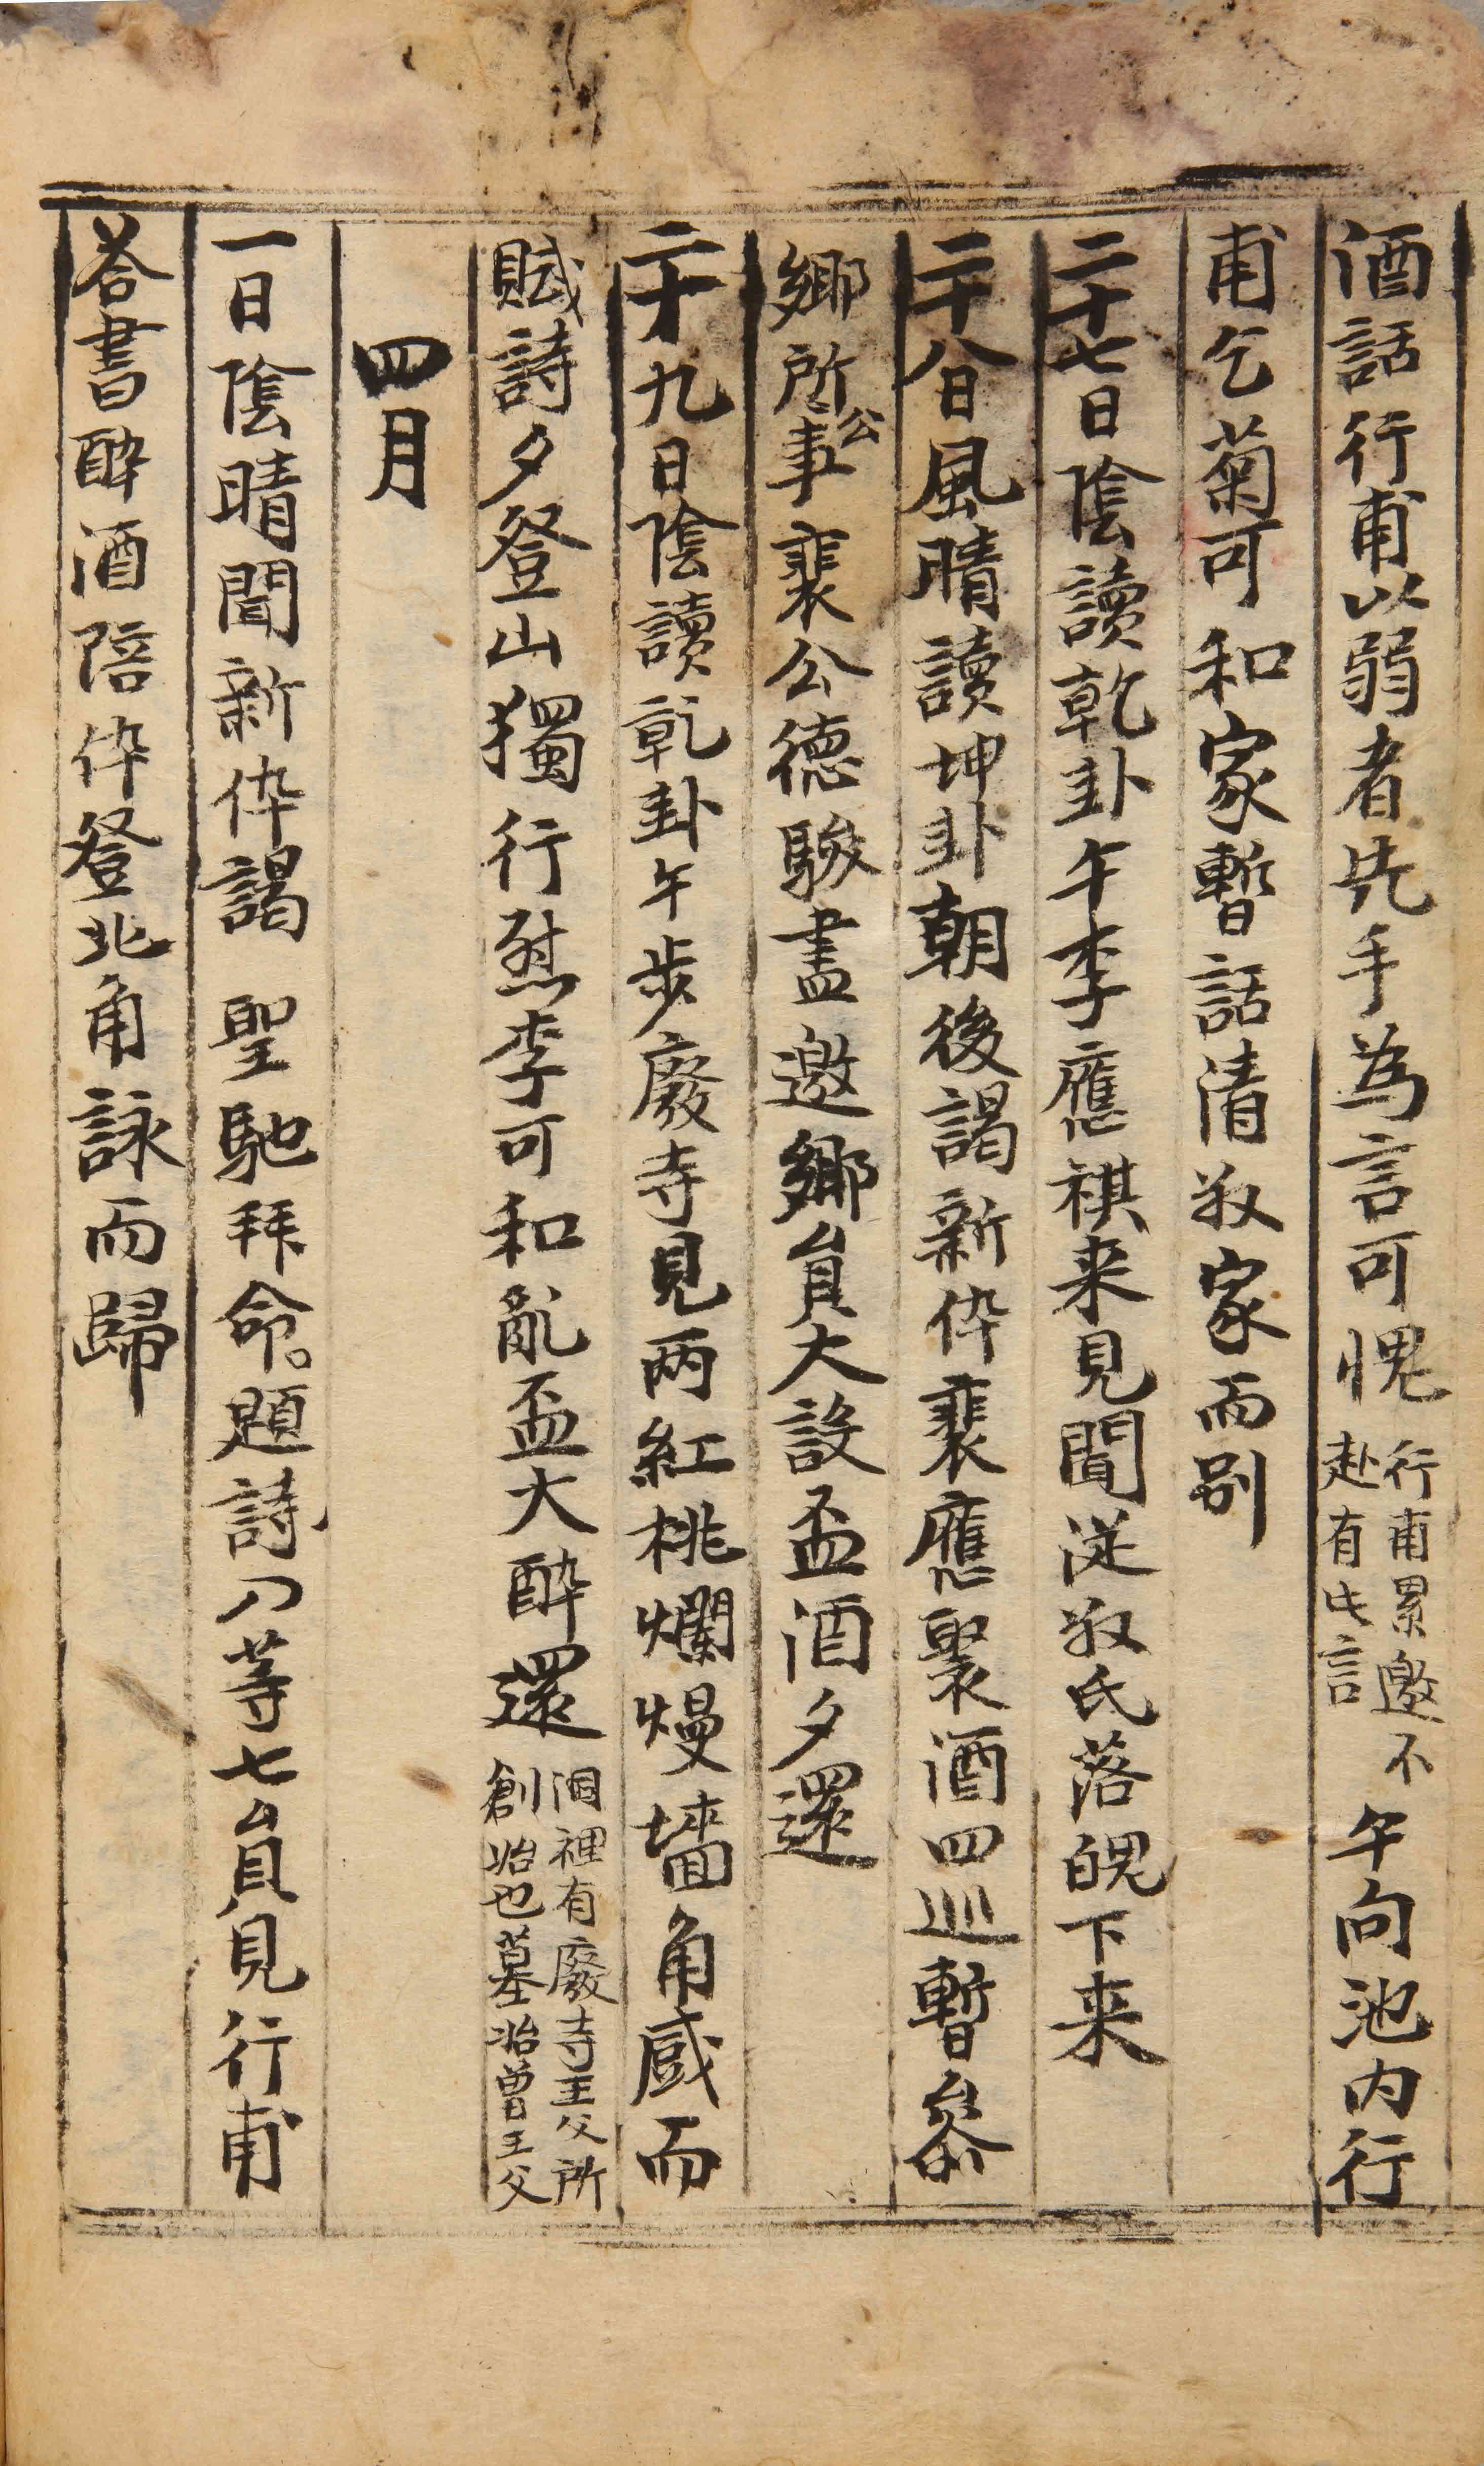 酒話行甫以弱者先手爲言可愧行甫累邀不赴有此言午向池内行
甫乞菊可和家暫話清叔家而别
二十七日陰讀乾卦午李應祺来見聞從叔氏落魄下来
二十八日風晴讀坤卦朝後謁新倅裴應褧酒四巡暫叅
鄉所公事裴公德駿盡邀鄉員大設盃酒夕還
二十九日陰讀乾卦午步廢寺見兩紅桃爛熳墻角感而
賦詩夕登山獨行慰李可和亂盃大醉還洞裡有廢寺王父所創始也墓始曾王父
四月
一日陰晴聞新倅謁 聖馳拜命題詩八等七員見行甫
荅書醉酒陪倅登北角詠而歸